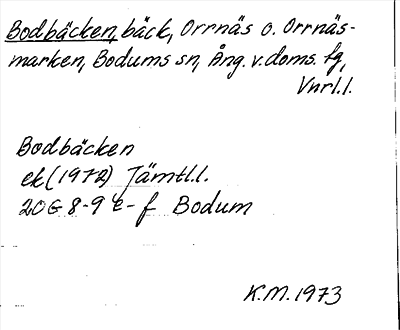 Bodbäcken, bäck, Orrnäs o. Orrnäs-
marken, Bodums sn, Ång. v. doms. fg,
Vnrl.l.
Bodbäcken
ek (1972) Jämtl.l.
20G 8-9 e-f Bodum
K.M. 1973